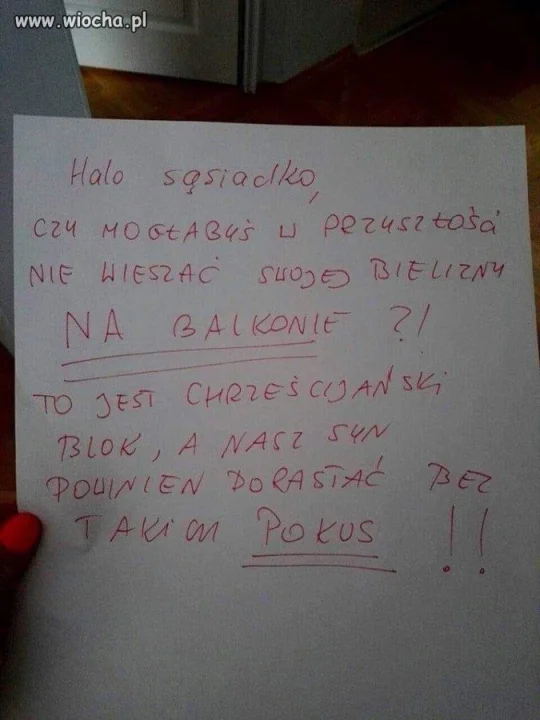 www.wiocha.pl
Halo sąsiadko,
CZY MOGŁABYŚ W PRZYSZŁOŚCI
NIE WIESZAĆ SWOJEJ BIELIZNY
NA BALKONIE ?!
TO JEST CHRZEŚCIJAŃSKI
BLOK, A NASZ SYN
POWINIEN DORASTAĆ BEZ
TAKICH POKUS !!